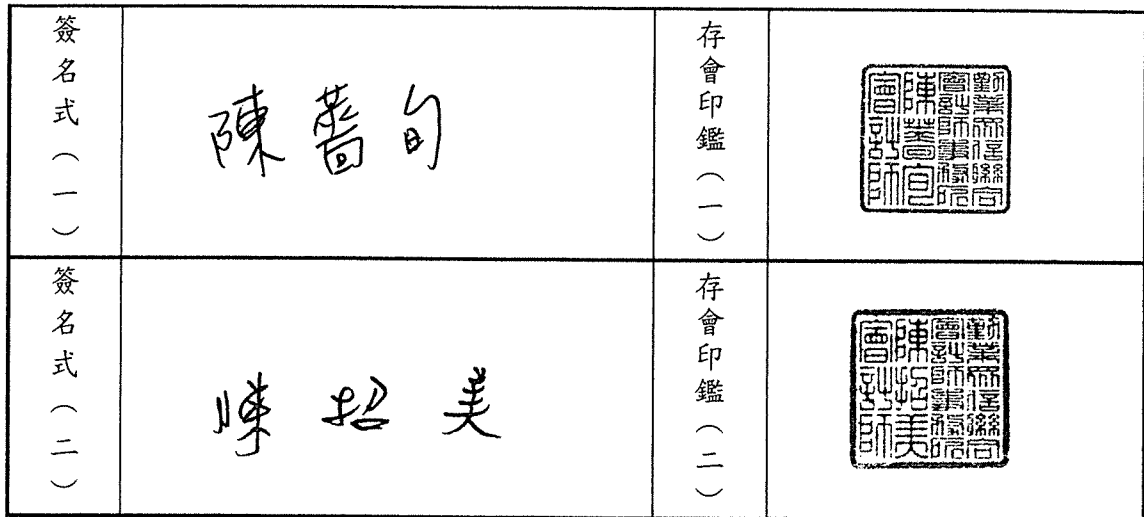 簽名式（一）
陳薔旬
存會印鑑（一）
勤業眾信聯合
會計師事務所
陳薔旬
會計師
簽名式（二）
陳招美
存會印鑑（二）
勤業眾信聯合
會計師事務所
陳招美
會計師